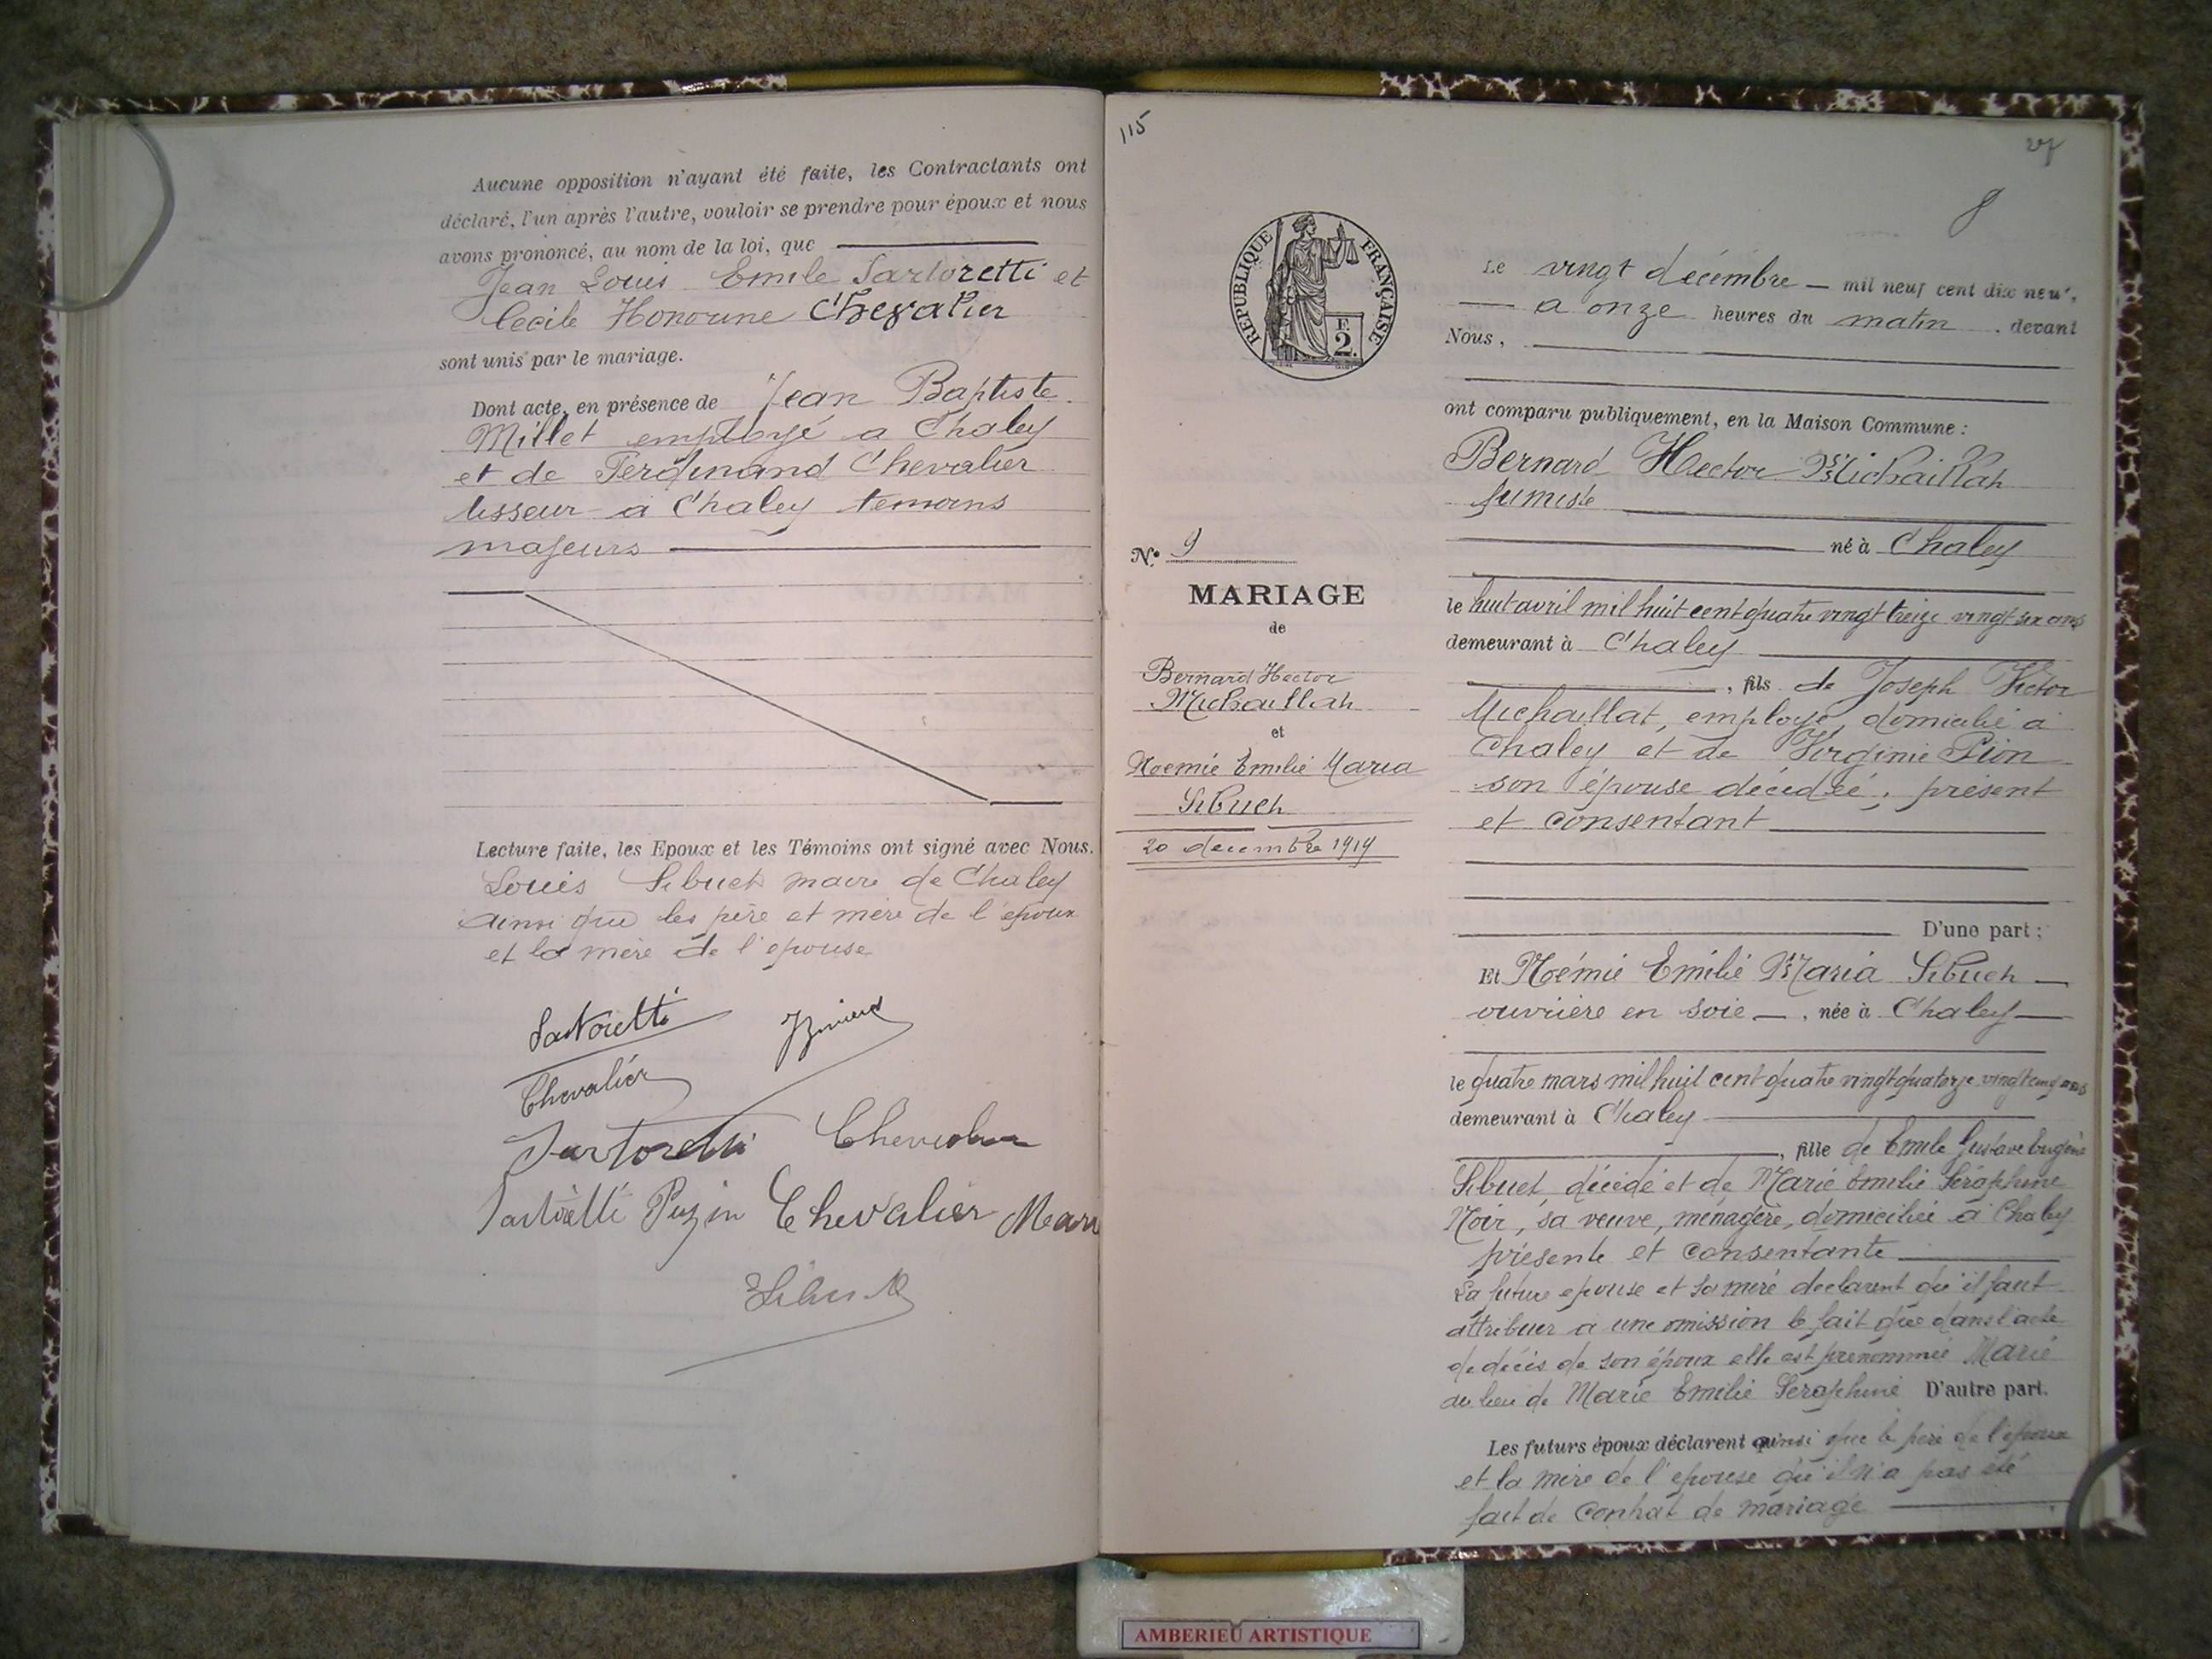 Aucune opposition n'ayant été faite, les Contractants ont
déclaré, l'un après l'autre, vouloir se prendre pour époux et nous
avons prononcé, au nom de la loi, que
Jean Louis Emile Sartoretti et
Cecile Honorine Chevalier
sont unis par le mariage.
Dont acte, en présence de Jean Baptiste
Millet employé a Chaley
et de Ferdinand Chevalier
tisseur a Chaley temoins
majeurs
Lecture faite, les Epoux et les Témoins ont signé avec Nous.
Louis Sibuet maire de Chaley
ainsi que les père et mère de l'epoux
et la mère de l'epouse
Sartoretti
Chevalier
Sartoretti Chevalier
Sartoretti Puzin Chevalier
Sibuet
115
8
REPUBLIQUE FRANÇAISE
F.
2.
N° 9
MARIAGE
de
Bernard Hector
Michaillat
et
Noemie Emilie Maria
Sibuet
20 decembre 1919
Le vingt decembre mil neuf cent dix neuf,
a onze heures du matin, devant
Nous,
ont comparu publiquement, en la Maison Commune :
Bernard Hector Michaillat
fumiste
né à Chaley
le huit avril mil huit cent quatre vingt treize vingt six ans
demeurant à Chaley
, fils de Joseph Victor
Michaillat, employé, domicilié a
Chaley et de Virginie Pion
son épouse décédée; présent
et consentant
D'une part ;
Et Noémie Emilie Maria Sibuet
ouvrière en soie, née à Chaley
le quatre mars mil huit cent quatre vingt quatorze vingt cinq ans
demeurant à Chaley
, fille de Emile Gustave Eugène
Sibuet, décédé et de Marie Emilie Séraphine
Noir, sa veuve, ménagère, domiciliée a Chaley
présente et consentante
La future epouse et sa mère declarent qu'il faut
attribuer a une omission le fait que dans l'acte
de décès de son époux elle est prenommée Marie
au lieu de Marie Emilie Seraphine D'autre part.
Les futurs époux déclarent ainsi que le père de l'époux
et la mère de l'epouse qu'il n'a pas été
fait de contrat de mariage
AMBERIEU ARTISTIQUE